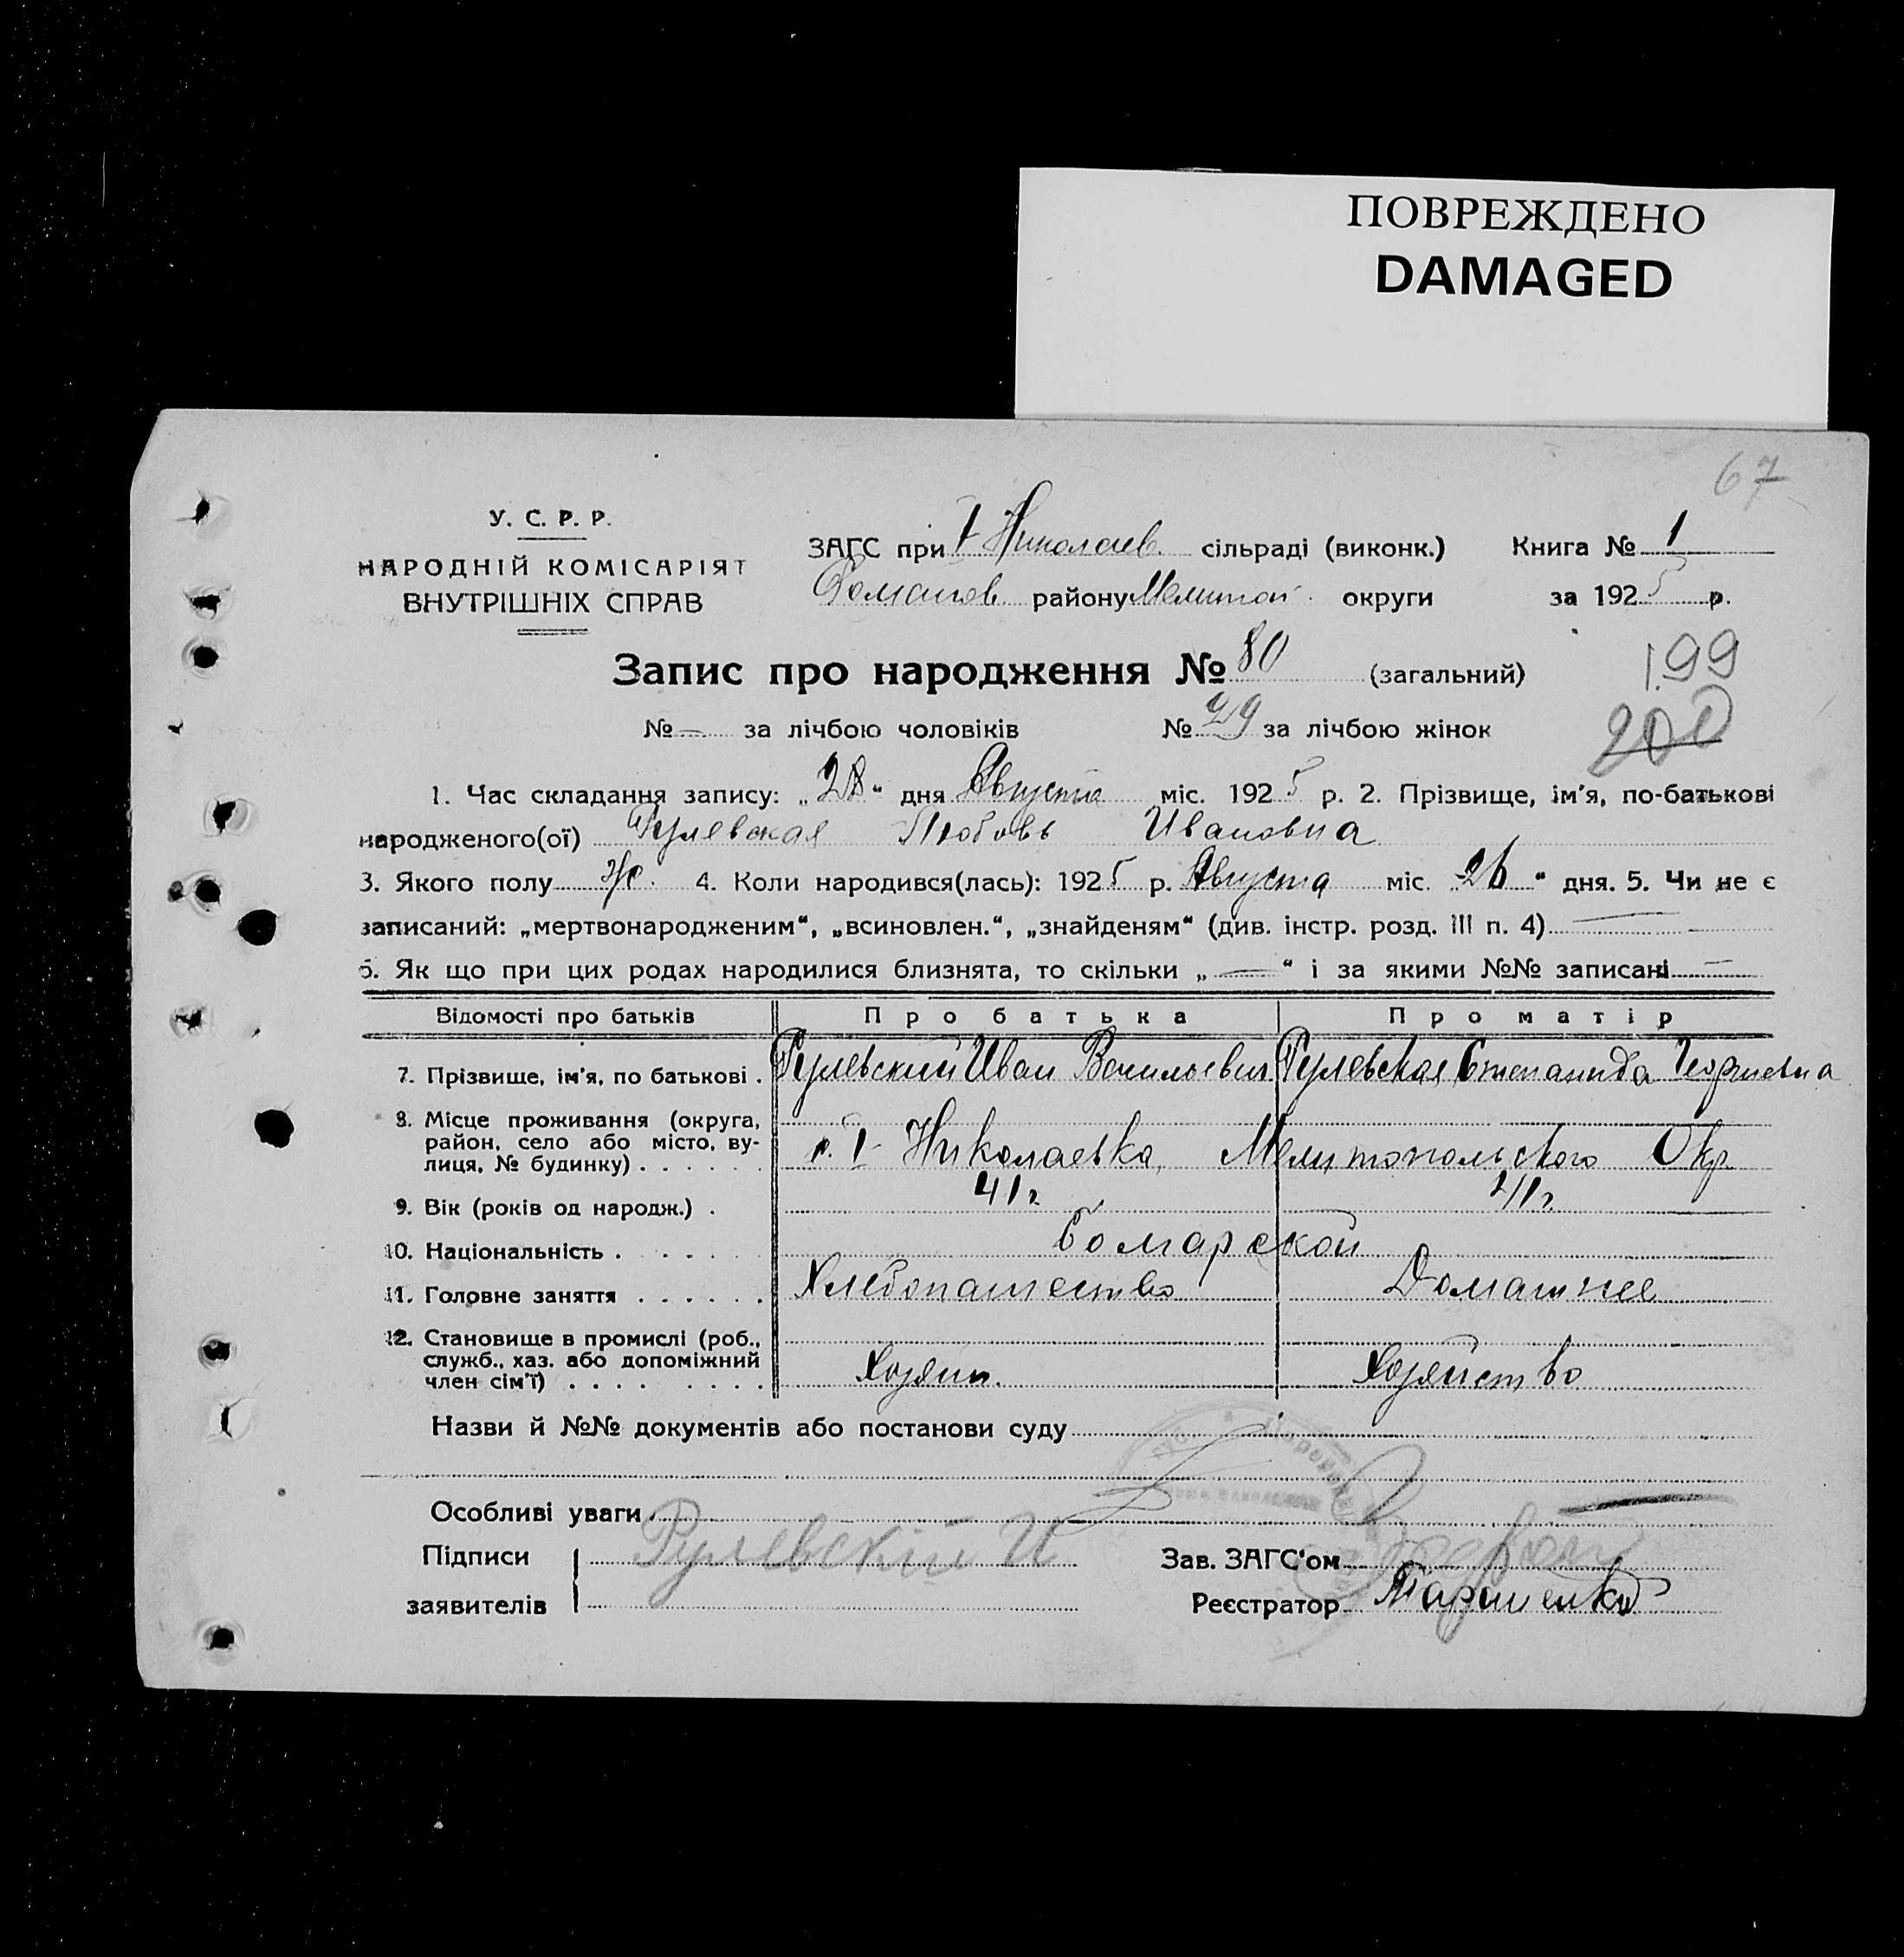 ПОВРЕЖДЕНО
DAMAGED
67
У. С. Р. Р.
НАРОДНІЙ КОМІСАРІЯТ
ВНУТРІШНІХ СПРАВ
ЗАГС при I Николаев. сільраді (виконк.) Книга № 1
району Мелитоп. округи за 1925 р.
Запис про народження № 80 (загальний)
199
№ — за лічбою чоловіків № 29 за лічбою жінок
200
1. Час складання запису: „28“ дня Августа міс. 1925 р. 2. Прізвище, ім'я, по-батькові
народженого(ої) Рулевская Любовь Ивановна
3. Якого полу ж. 4. Коли народився(лась): 1925 р. Августа міс. 26 “ дня. 5. Чи не є
записаний: „мертвонародженим“, „всиновлен.“, „знайденям“ (див. інстр. розд. III п. 4) —
6. Як що при цих родах народилися близнята, то скільки „ — “ і за якими №№ записані —
Відомості про батьків Про батька Про матір
7. Прізвище, ім'я, по батькові . Рулевский Иван Васильевич Рулевская Степанида Георгиевна
8. Місце проживання (округа,
район, село або місто, ву-
лиця, № будинку) . . . . . . с. I Николаевка, Мелитопольского Окр.
9. Вік (років од народж.) . 41 г 41 г.
10. Національність . . . . . .
11. Головне заняття . . . . . . Хлебопашество Домашнее
12. Становище в промислі (роб.,
служб., хаз. або допоміжний
член сім'ї) . . . . . . . . Хозяин. Хозяйство
Назви й №№ документів або постанови суду
Особливі уваги
Підписи Рулевскій И Зав. ЗАГС'ом
заявителів Реєстратор